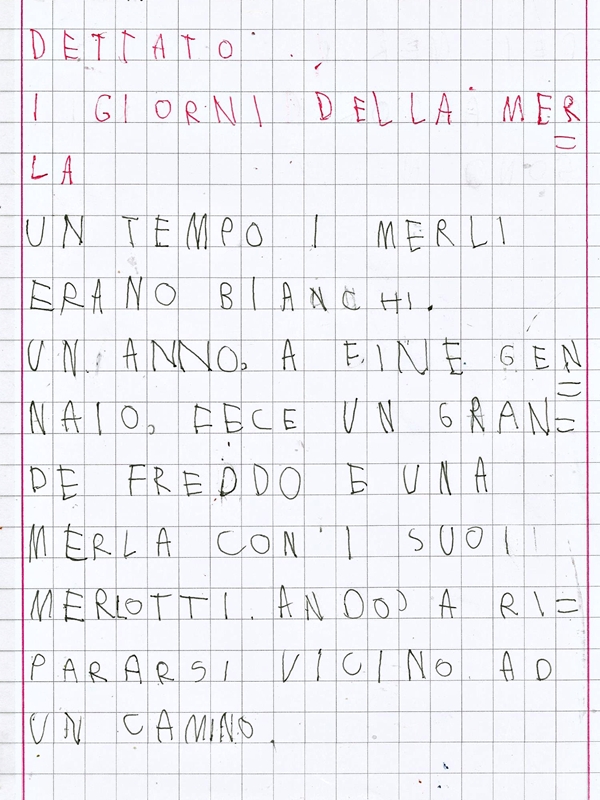 DETTATO
I GIORNI DELLA MER=
LA
UN TEMPO I MERLI
ERANO BIANCHI.
UN ANNO, A FINE GEN=
NAIO, FECE UN GRAN=
DE FREDDO E UNA
MERLA CON I SUOI
MERLOTTI ANDO' A RI=
PARARSI VICINO AD
UN CAMINO.